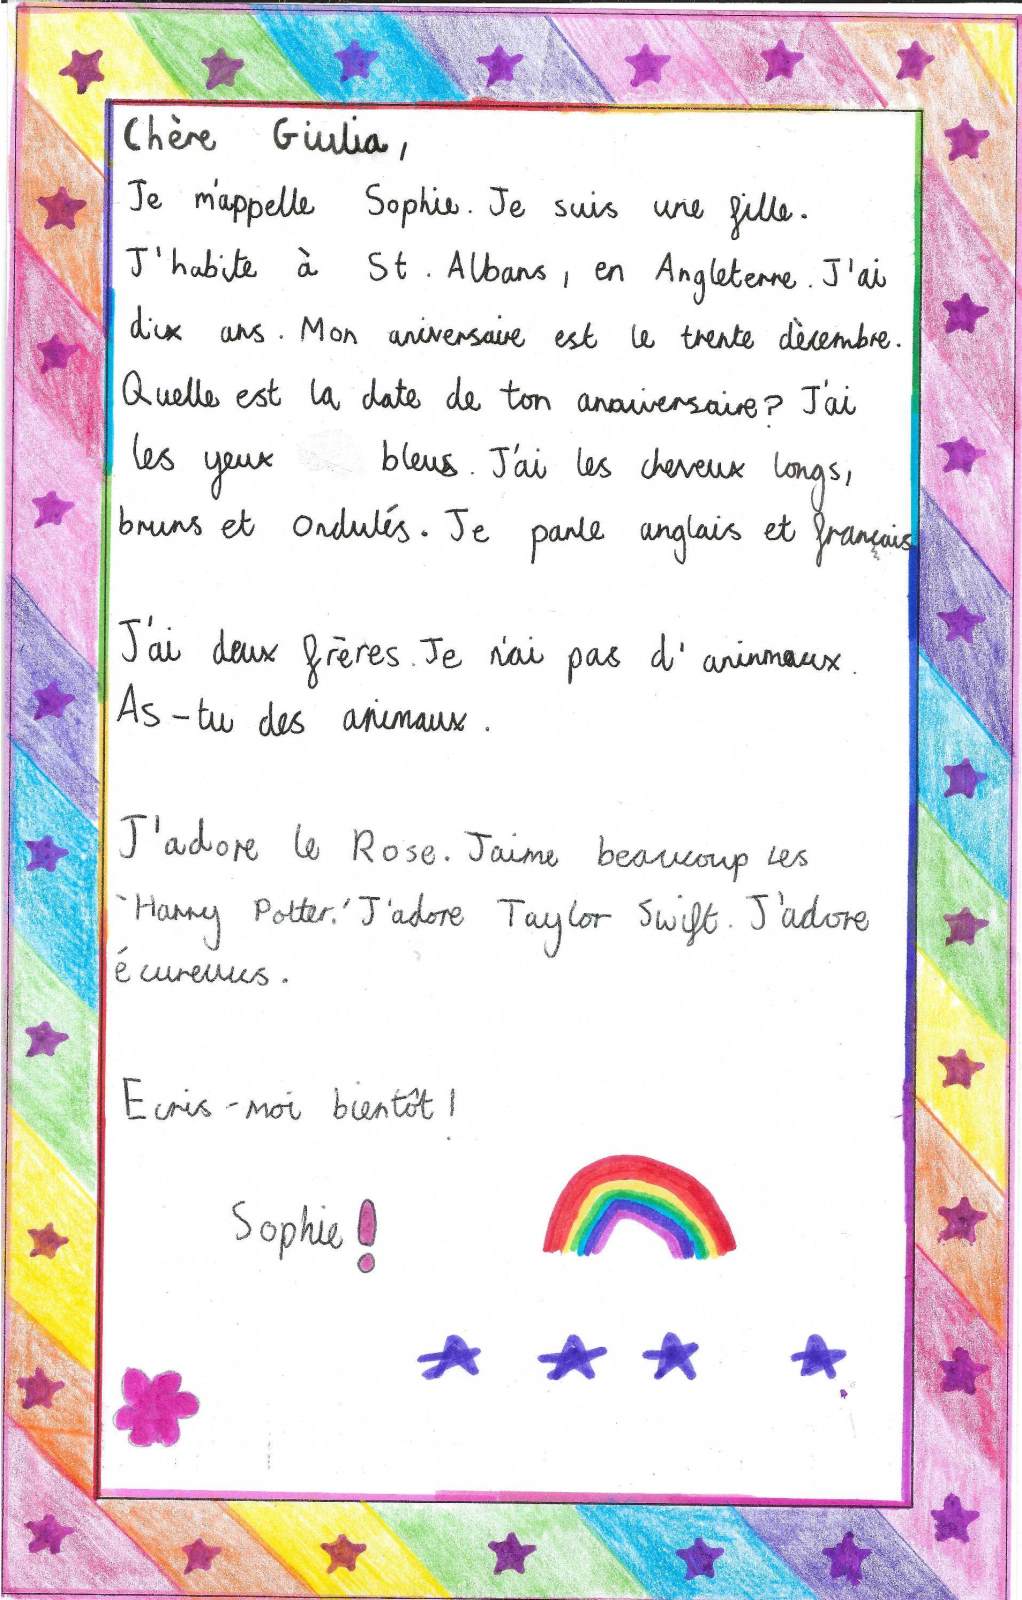 Chère Giulia,
Je m'appelle Sophie. Je suis une fille.
J'habite à St. Albans, en Angleterre. J'ai
dix ans. Mon aniversaire est le trente dècembre.
Quelle est la date de ton anniversaire? J'ai
les yeux bleus. J'ai les cheveux longs,
bruns et ondulés. Je parle anglais et français
J'ai deux frères. Je n'ai pas d'aninmaux.
As-tu des animaux.
J'adore le Rose. J'aime beaucoup les
'Harry Potter.' J'adore Taylor Swift. J'adore
écureuus.
Ecris-moi bientôt!
Sophie!